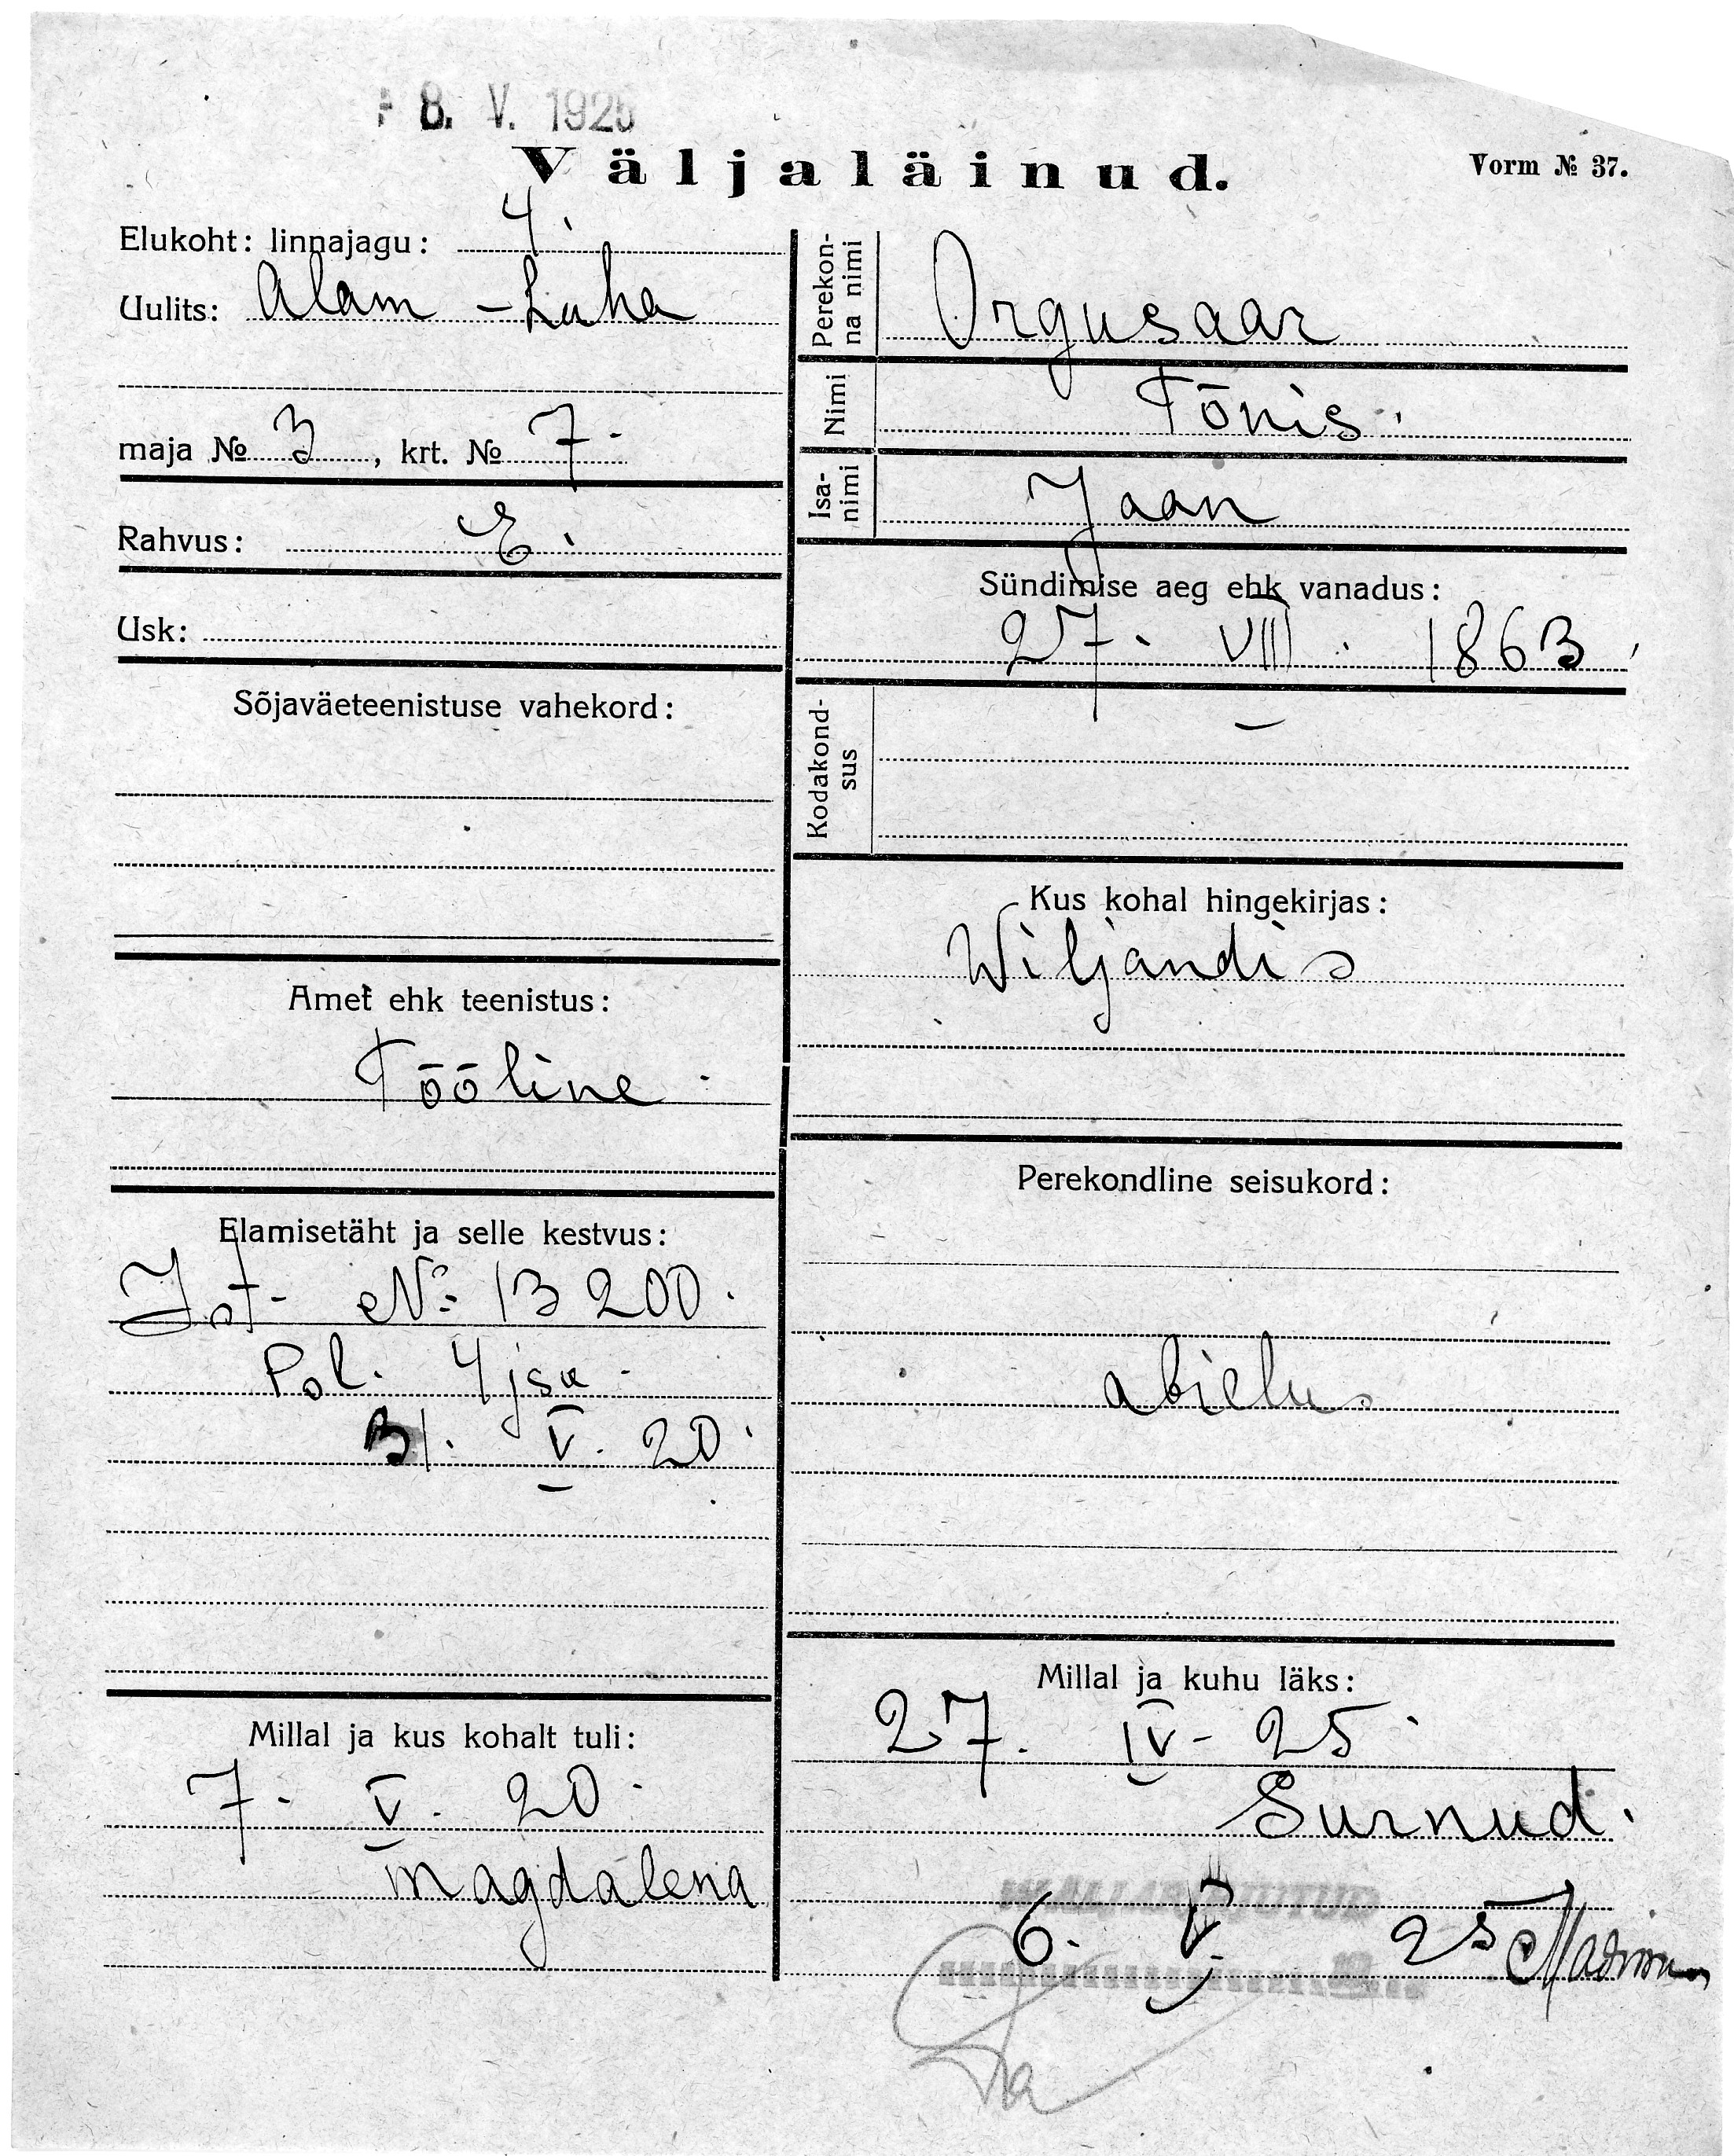 8. V. 1925
Väljaläinud.
Vorm № 37.
Elukoht: linnajagu: 4.
Uulits: Alam-Luha
maja № 3, krt. № 7.
Rahvus: E.
Usk:
Sõjaväeteenistuse vahekord:
Amet ehk teenistus:
Tööline.
Elamisetäht ja selle kestvus:
№ 13200.
Pol. 4 jsk.
31. V. 20.
Millal ja kus kohalt tuli:
7. V. 20.
Magdalena
Perekon-
na nimi
Orgusaar
Nimi
Tõnis.
Isa-
nimi
Jaan
Sündimise aeg ehk vanadus:
27. VIII. 1863.
Kodakond-
sus
Kus kohal hingekirjas:
Wiljandis
Perekondline seisukord:
abielus
Millal ja kuhu läks:
27. IV. 25.
Surnud.
6. V. 25